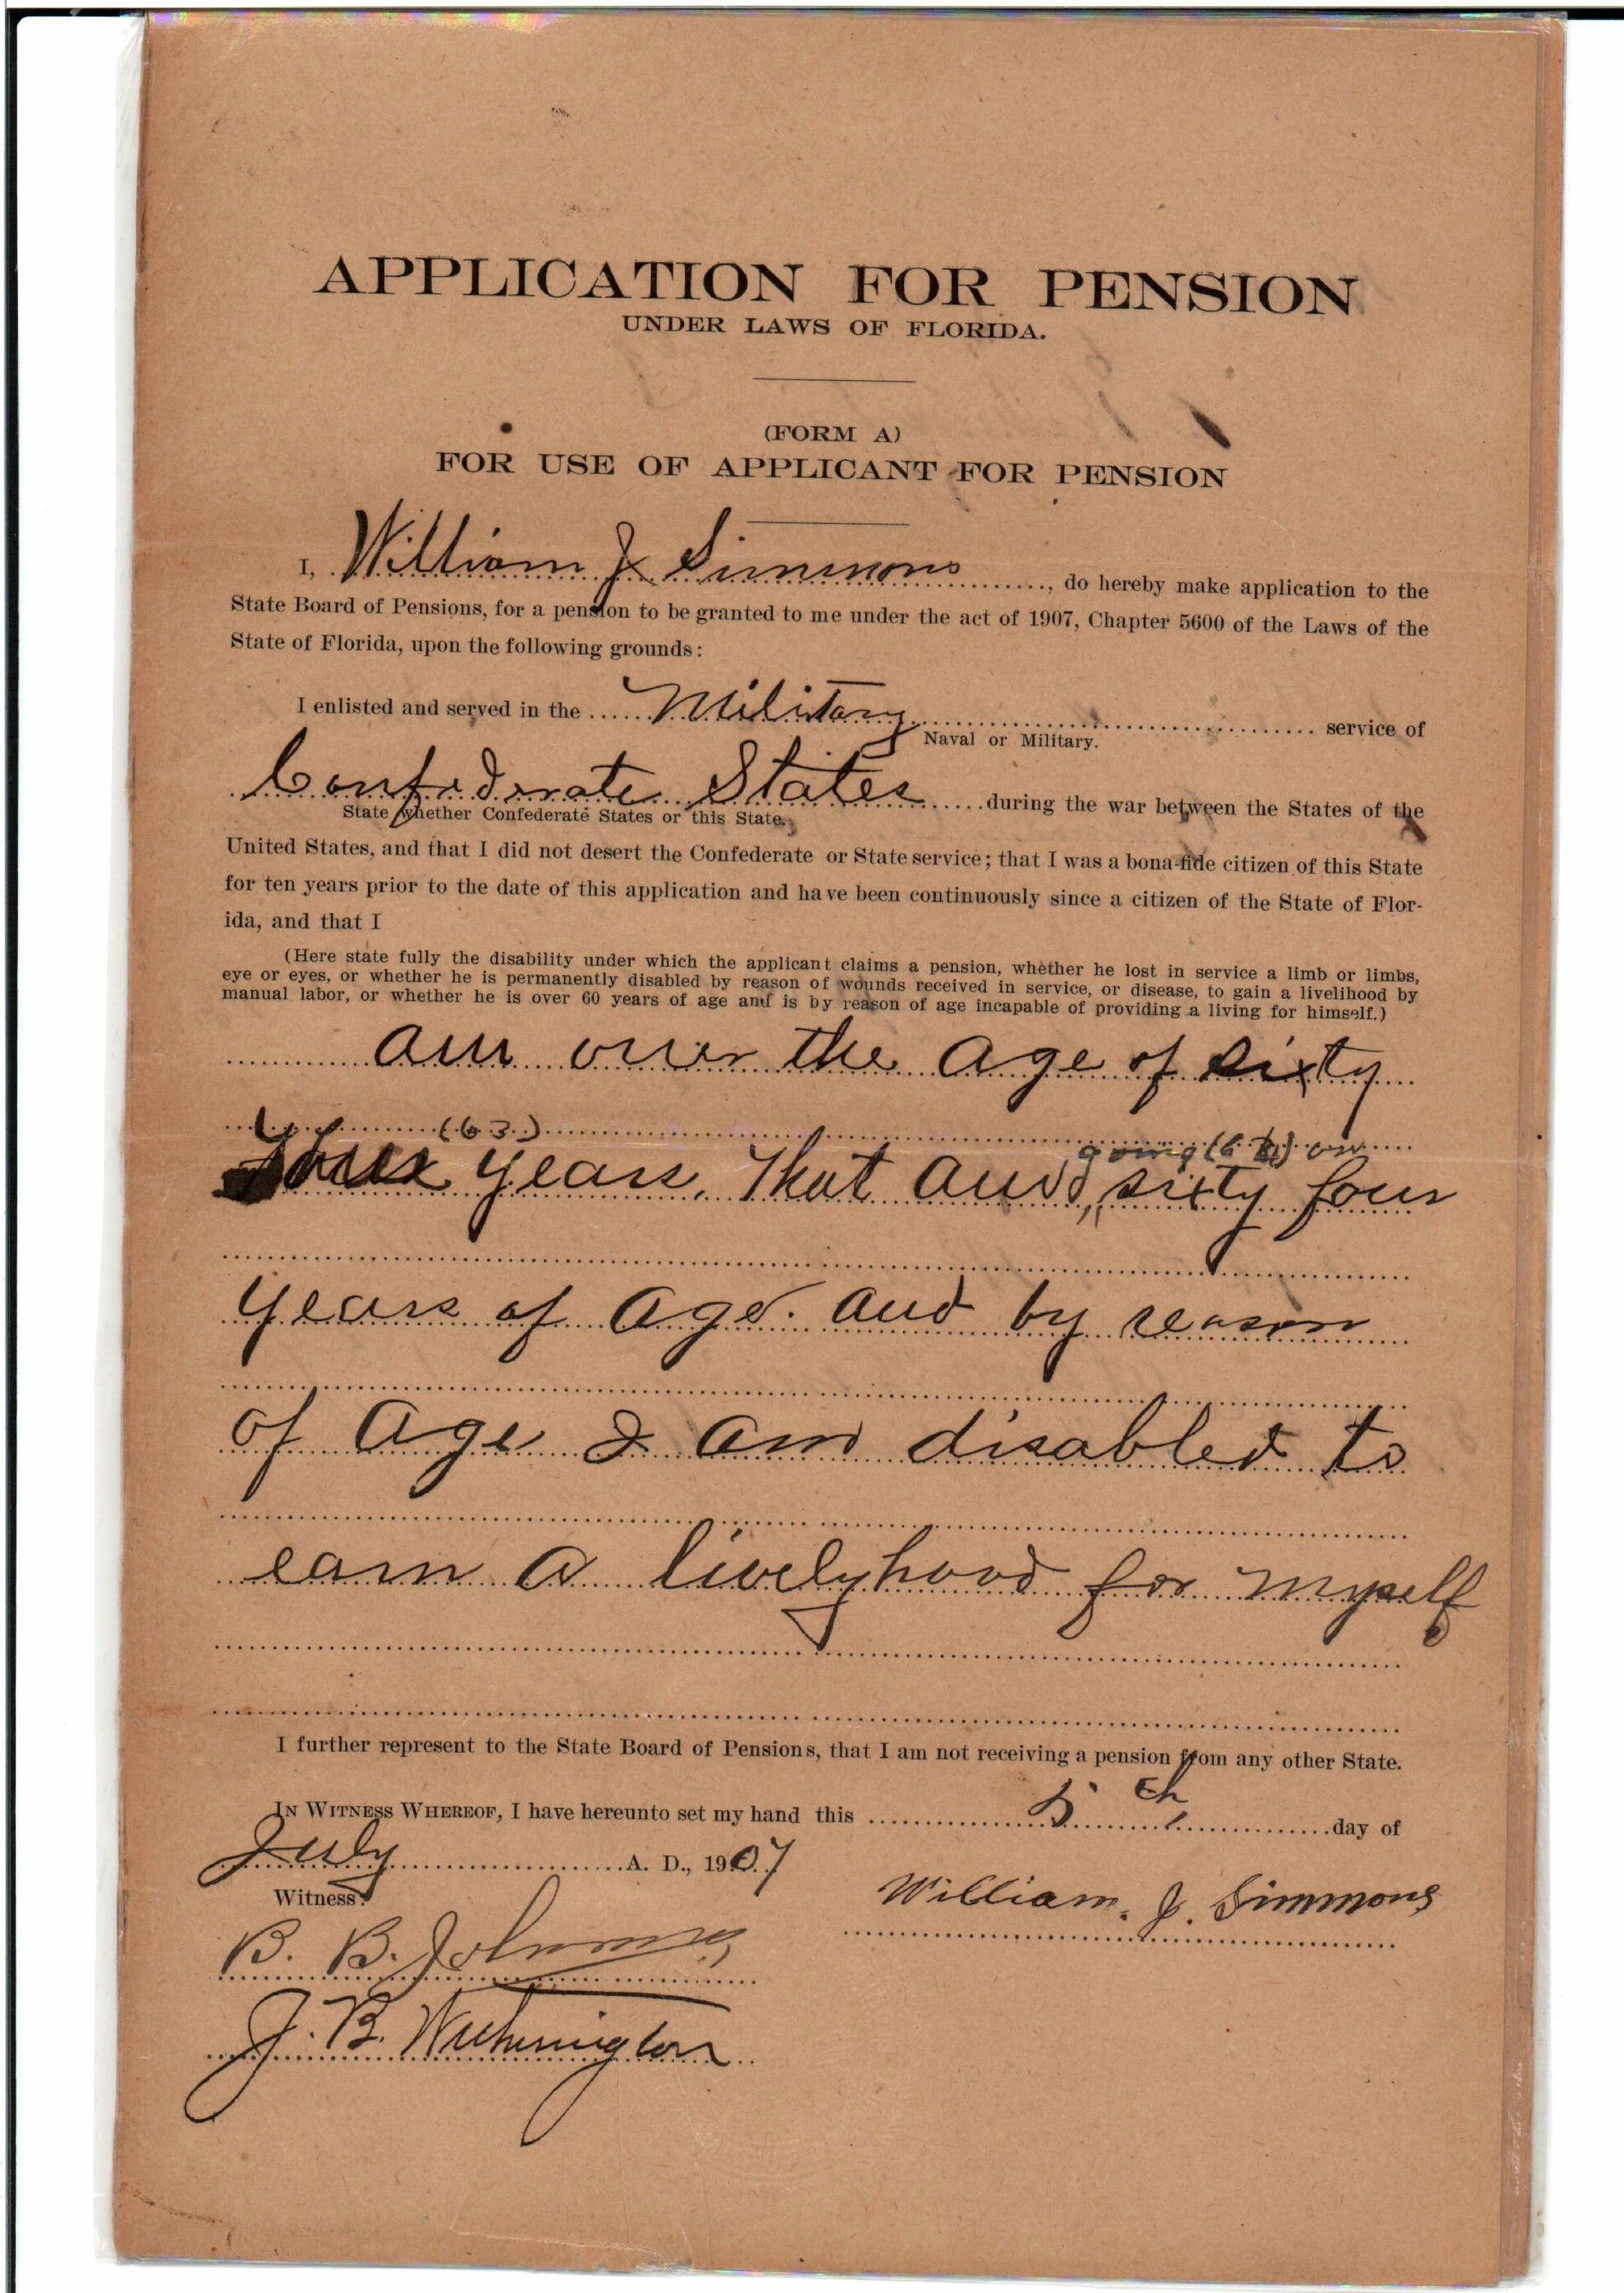 APPLICATION FOR PENSION
UNDER LAWS OF FLORIDA.
(FORM A)
FOR USE OF APPLICANT FOR PENSION
I, William J Simmons, do hereby make application to the
State Board of Pensions, for a pension to be granted to me under the act of 1907, Chapter 5600 of the Laws of the
State of Florida, upon the following grounds:
I enlisted and served in the Military service of
Naval or Military.
Confederate States during the war between the States of the
State whether Confederate States or this State.
United States, and that I did not desert the Confederate or State service; that I was a bona-fide citizen of this State
for ten years prior to the date of this application and have been continuously since a citizen of the State of Flor-
ida, and that I
(Here state fully the disability under which the applicant claims a pension, whether he lost in service a limb or limbs,
eye or eyes, or whether he is permanently disabled by reason of wounds received in service, or disease, to gain a livelihood by
manual labor, or whether he is over 60 years of age and is by reason of age incapable of providing a living for himself.)
am over the age of sixty
(63)
going on
years. That am sixty four
years of age. and by reason
of age I am disabled to
earn a livelyhood for myself
I further represent to the State Board of Pensions, that I am not receiving a pension from any other State.
IN WITNESS WHEREOF, I have hereunto set my hand this 5th day of
July A. D., 1907
Witness:
William. J. Simmons
B. B. Johnson
J. B. Witherington